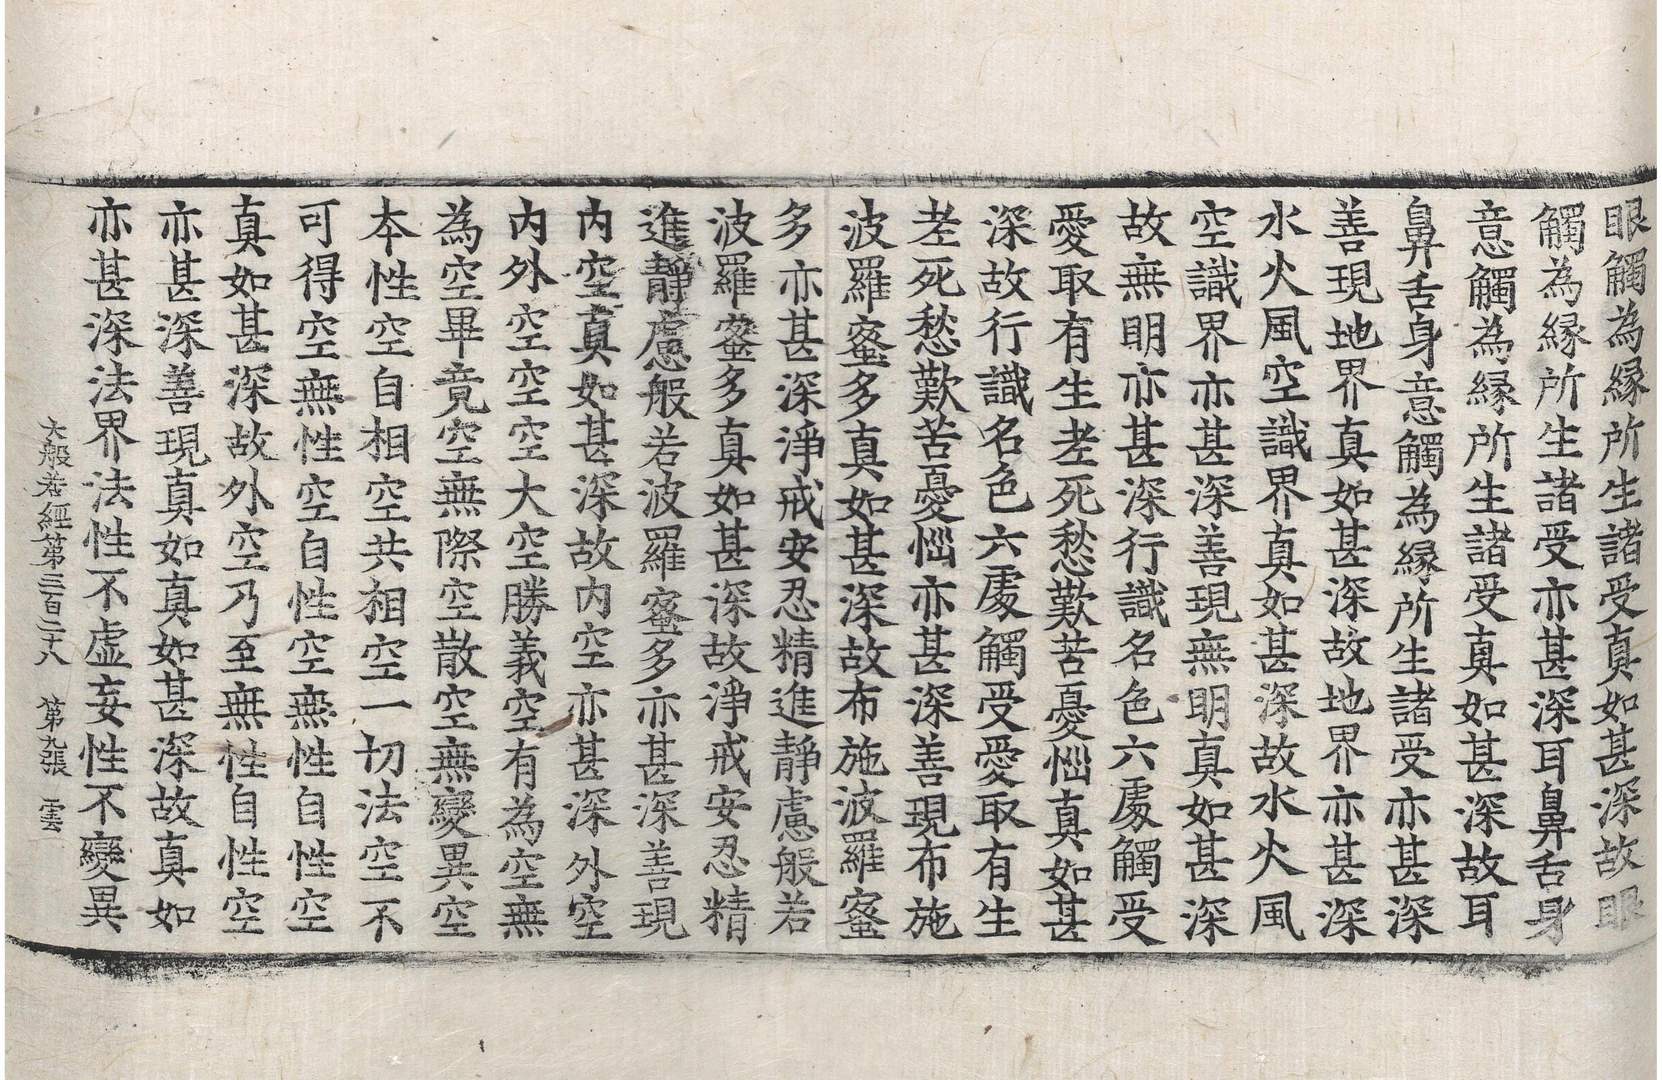 眼觸為緣所生諸受真如甚深故眼
觸為緣所生諸受亦甚深耳鼻舌身
意觸為緣所生諸受真如甚深故耳
鼻舌身意觸為緣所生諸受亦甚深
善現地界真如甚深故地界亦甚深
水火風空識界真如甚深故水火風
空識界亦甚深善現無明真如甚深
故無明亦甚深行識名色六處觸受
愛取有生老死愁歎苦憂惱真如甚
深故行識名色六處觸受愛取有生
老死愁歎苦憂惱亦甚深善現布施
波羅蜜多真如甚深故布施波羅蜜
多亦甚深淨戒安忍精進靜慮般若
波羅蜜多真如甚深故淨戒安忍精
進靜慮般若波羅蜜多亦甚深善現
內空真如甚深故內空亦甚深外空
內外空空空大空勝義空有為空無
為空畢竟空無際空散空無變異空
本性空自相空共相空一切法空不
可得空無性空自性空無性自性空
真如甚深故外空乃至無性自性空
亦甚深善現真如真如甚深故真如
亦甚深法界法性不虛妄性不變異
大般若經第三百二十八　第九張　雲